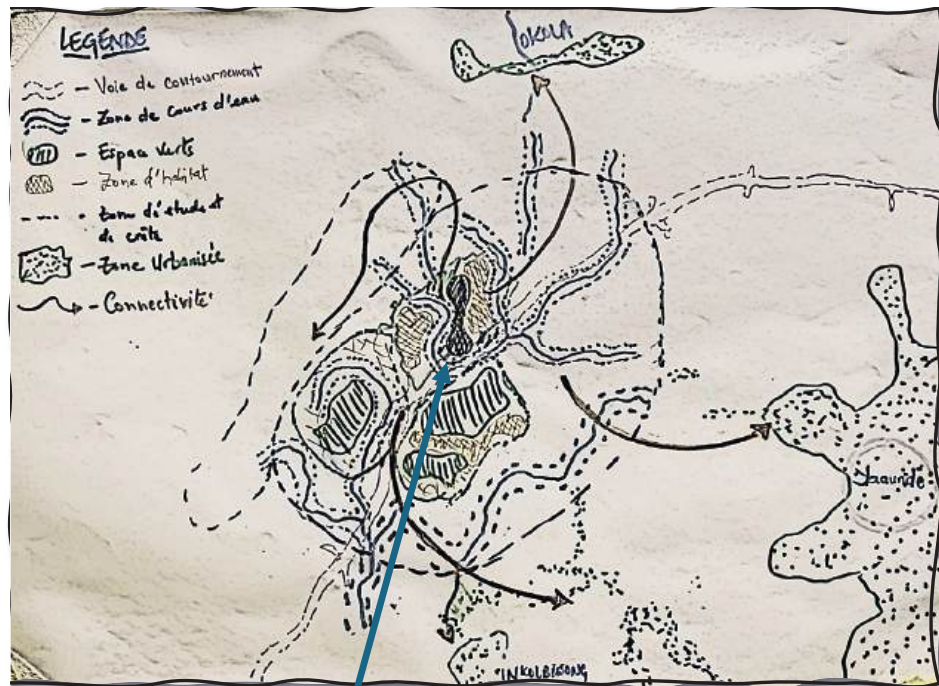 LEGENDE
- Voie de contournement
- Zone de cours d'eau
- Espace Verts
- Zone d'habitat
- Zone d'étude et
de crête
- Zone Urbanisée
- Connectivité
LOKOLA
Yaoundé
NKOLBISONG